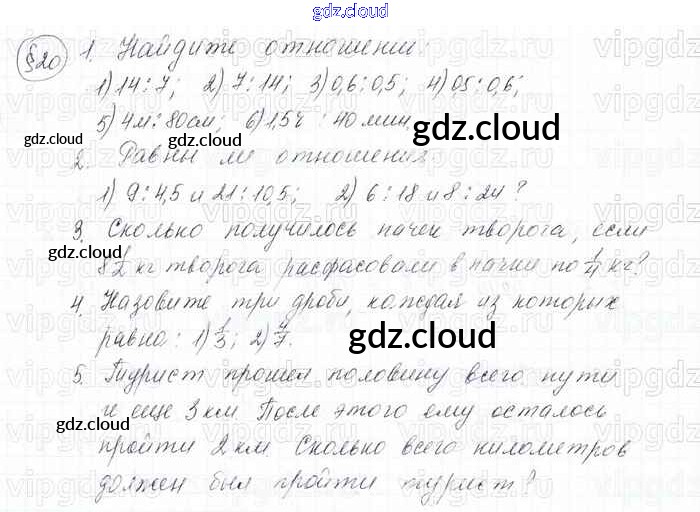 gdz.cloud
§20
1. Найдите отношения:
1) 14 : 7; 2) 7 : 14; 3) 0,6 : 0,5; 4) 0,5 : 0,6;
5) 4м : 80см; 6) 1,5ч : 40 мин.
gdz.cloud
gdz.cloud
2. Равны ли отношения:
1) 9 : 4,5 и 21 : 10,5; 2) 6 : 18 и 8 : 24?
3. Сколько получилось пачек творога, если
gdz.cloud
8 1/2 кг творога расфасовали в пачки по 1/4 кг?
4. Назовите три дроби, каждая из которых
равна: 1) 1/3; 2) 4/7.
gdz.cloud
5. Турист прошел половину всего пути
и еще 3 км. После этого ему осталось
gdz.cloud
пройти 2 км. Сколько всего километров
gdz.cloud
должен был пройти турист?